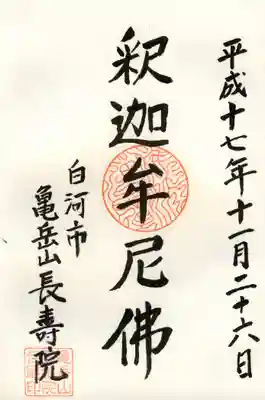 平成十七年十一月二十六日
釈迦牟尼佛
白河市
亀岳山長寿院